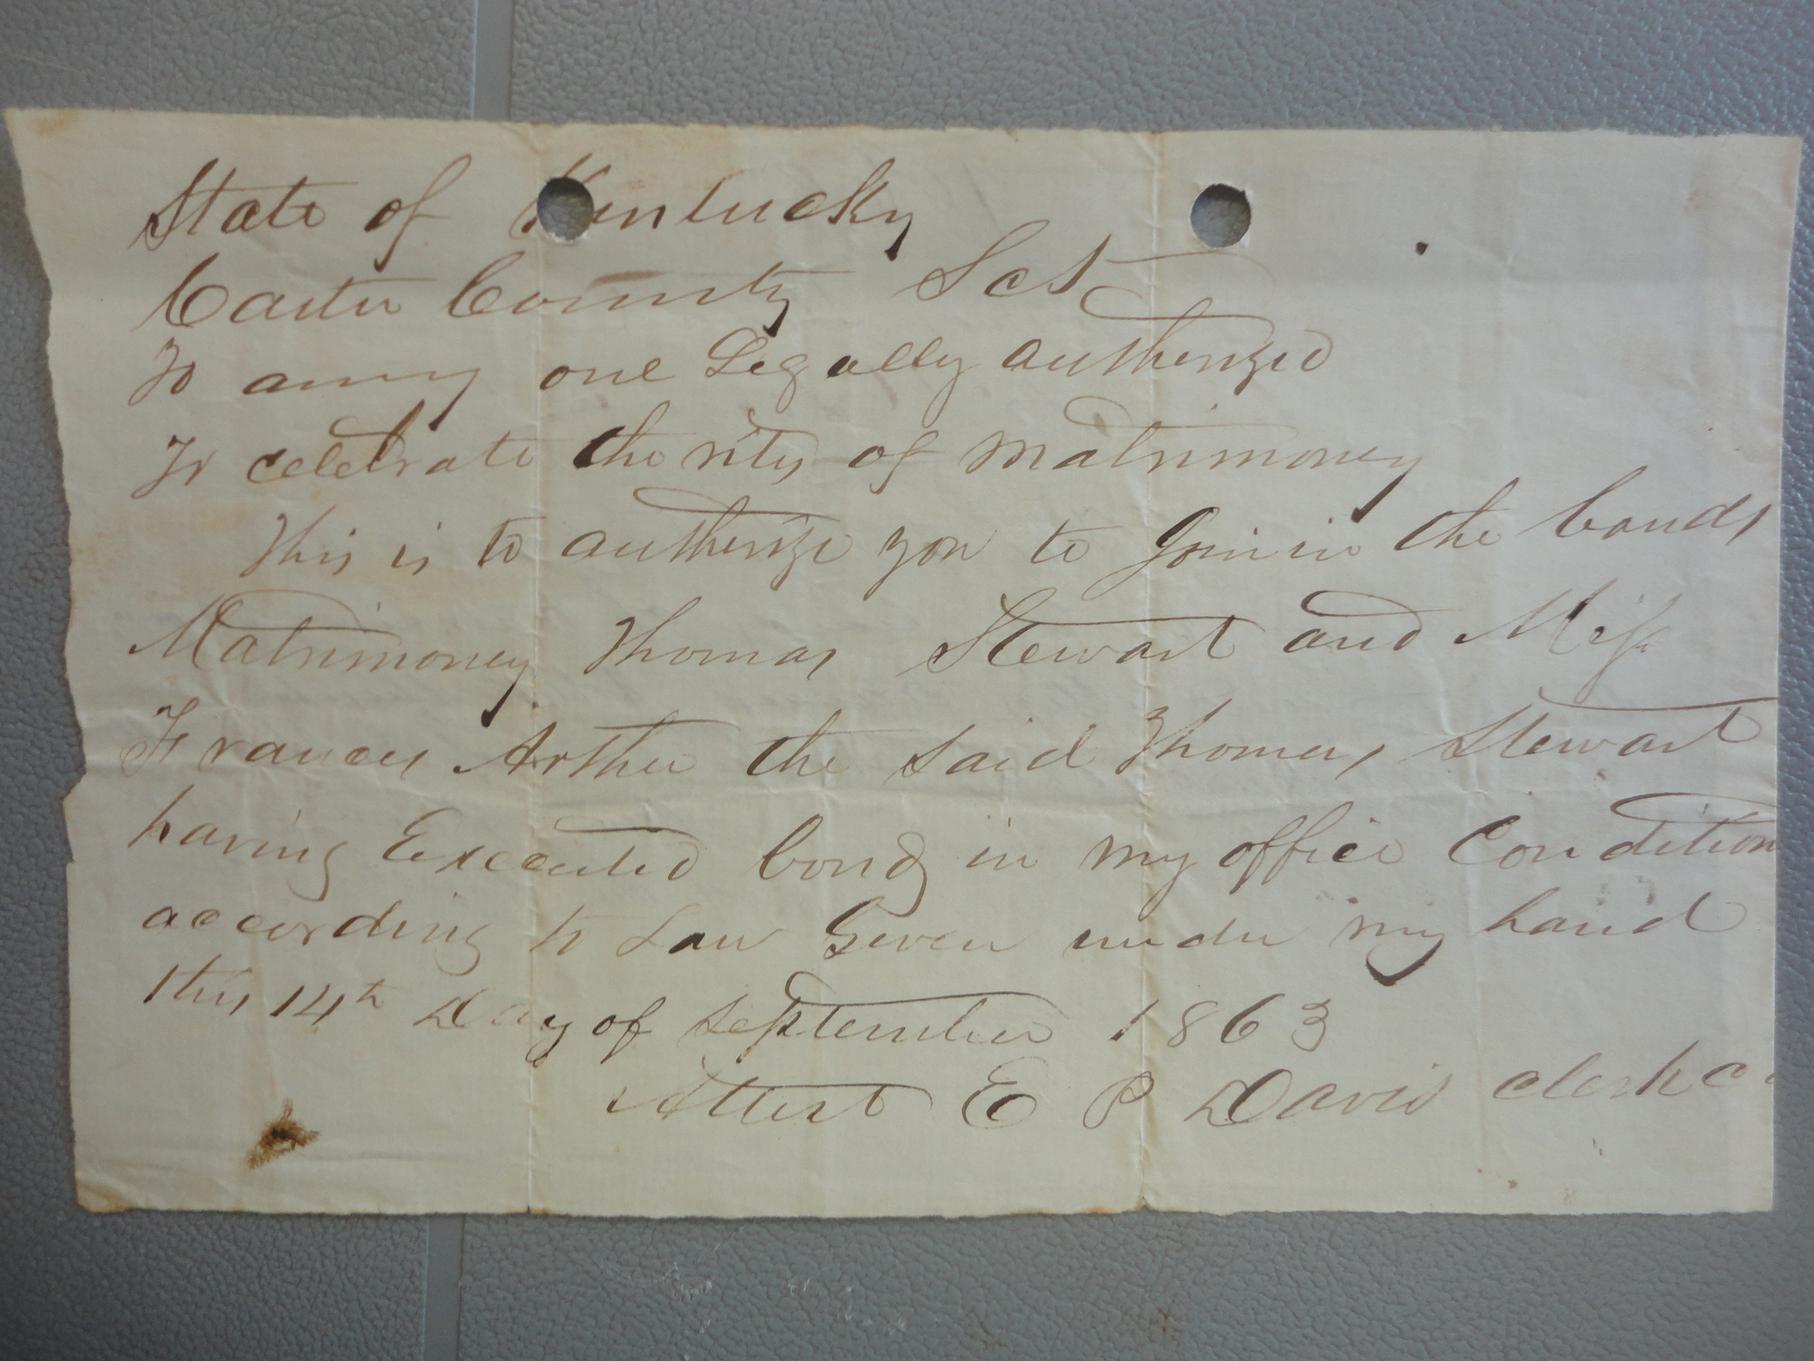 State of Kentucky
Carter County Sct
To anny one Legally autherized
To celebrate the rites of matrimoney
This is to autherize you to Join in the bonds
Matrimoney Thomas Stewart and Miss
Frances Arther the said Thomas Stewart
having Executed bond in my office Condition
according to Law Given under my hand
this 14th Day of September 1863
Attest E P Davis clerk